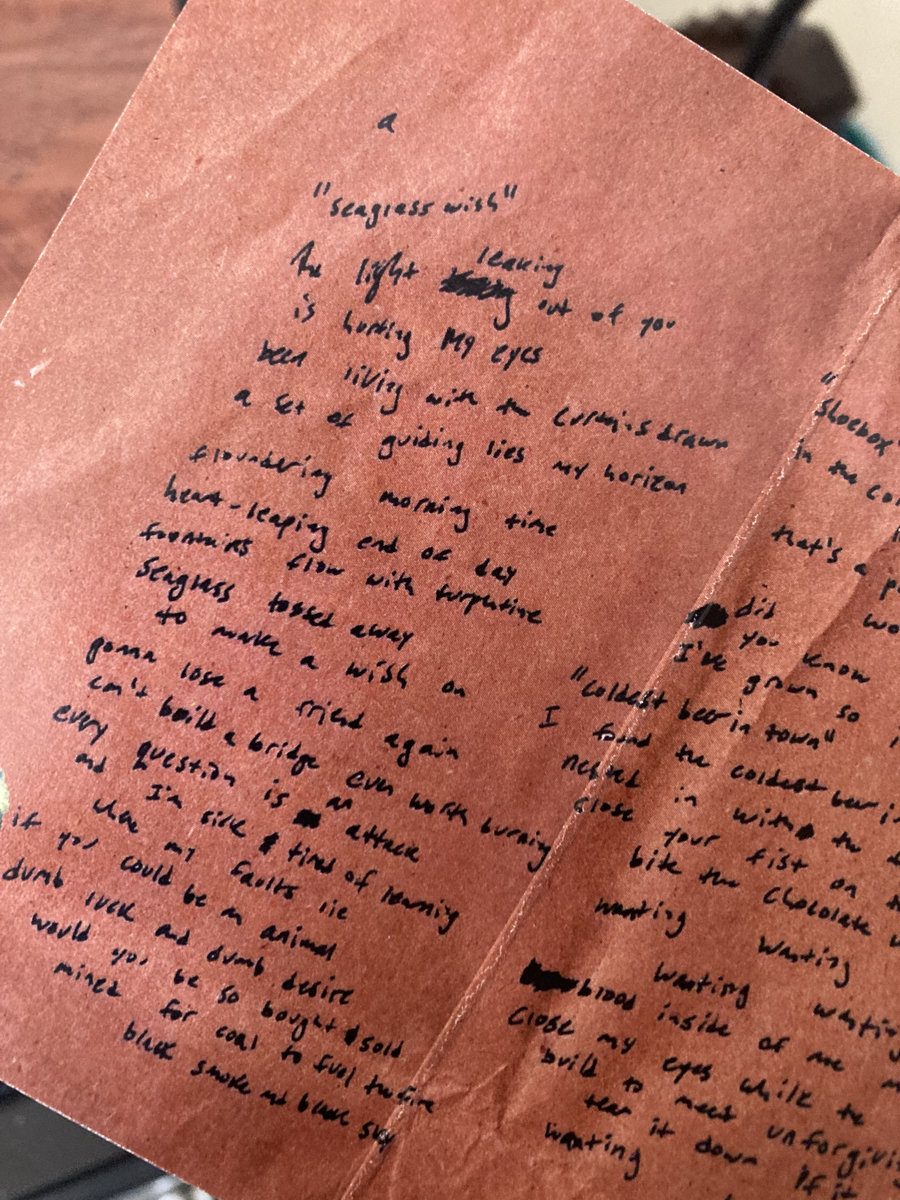 a
"seagrass wish"
the light leaking out of you
is hurting my eyes
been living with the curtains drawn
a set of guiding lies my horizon
floundering morning time
heart-leaping end of day
fountains flow with turpintine
seagrass tossed away
to make a wish on
gonna lose a friend again
can't build a bridge even worth burning
every question is an attack
and I'm sick & tired of learning
where my faults lie
if you could be an animal
dumb luck and dumb desire
would you be so bought & sold
mined for coal to fuel the fire
black smoke and black sky
"Shoebox"
in the
that's a
did you know
I've grown so
"coldest beer in town"
I found the coldest beer
nested in with the
close your fist on
bite the chocolate
wanting wanting
wanting
blood inside of me
close my eyes while
build to meet
tear it down
wanting